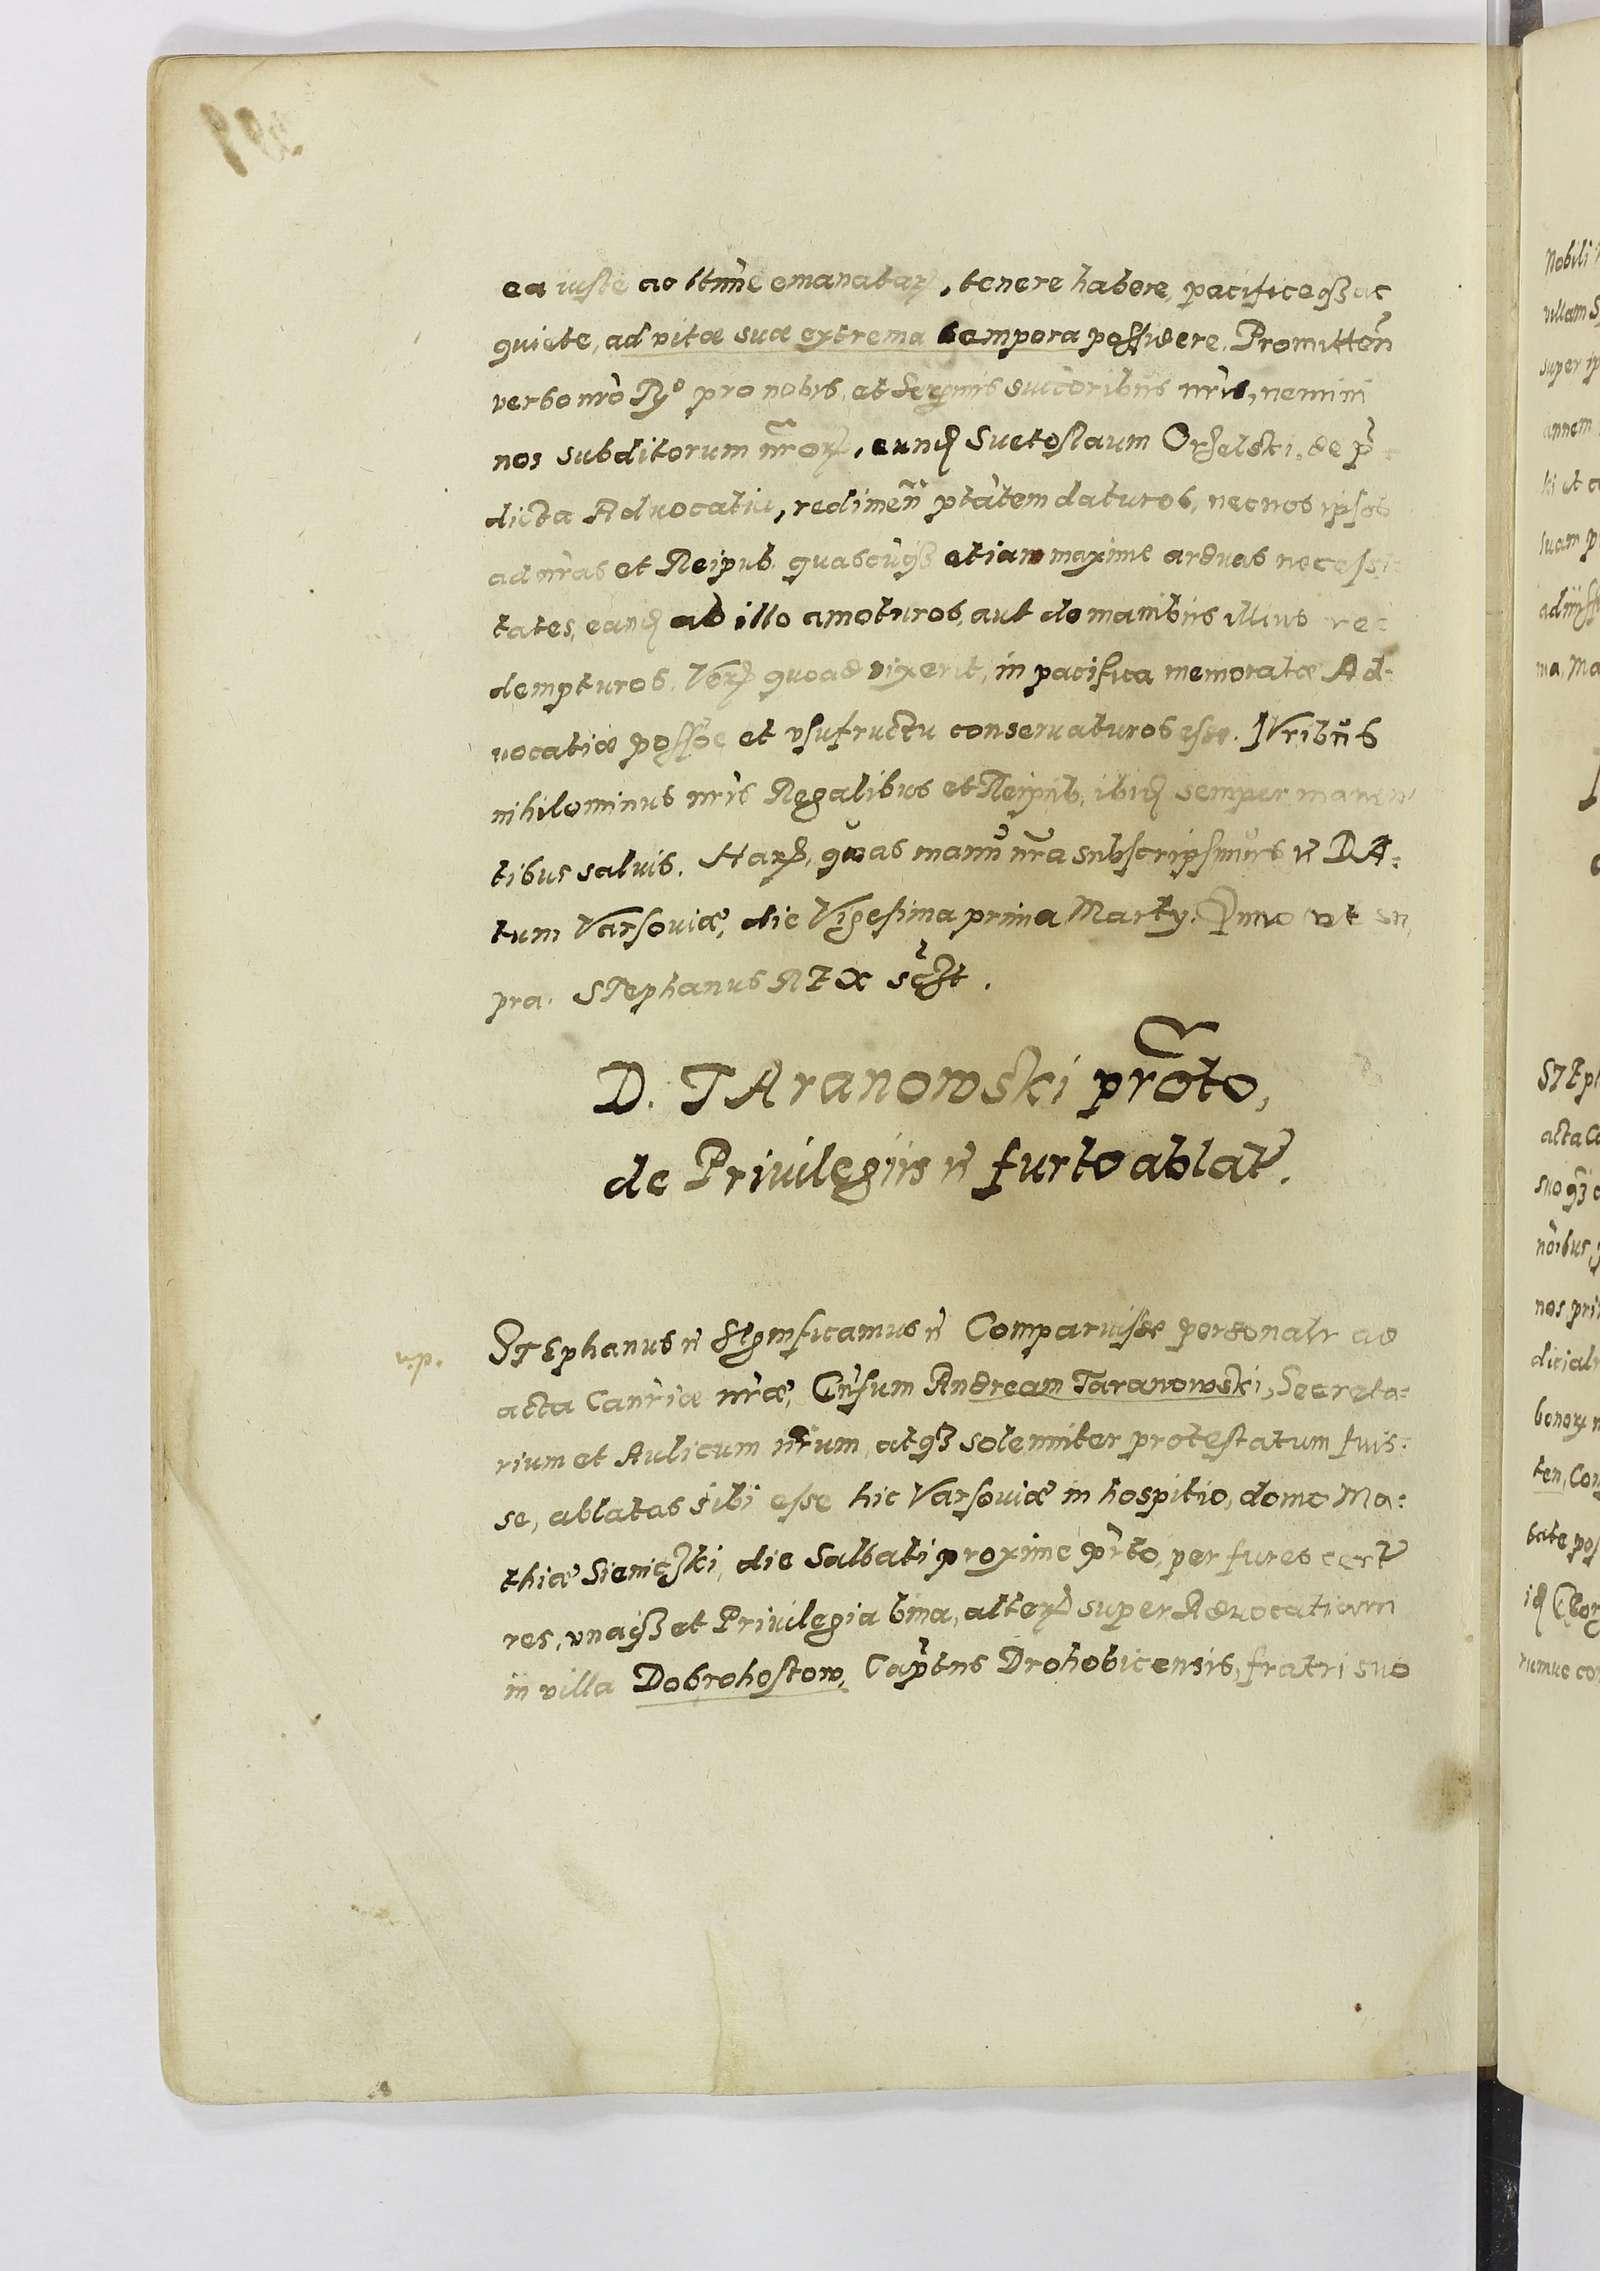 ea iuste ac ltime emanatarꝝ, tenere habere, pacificeqꝫ ac
quiete, ad vitæ suæ extrema tempora possidere. Promitten̄
verbo nro Ro pro nobis, et Sermis succoribus nris, nemini
nos subditorum nrorꝝ, eund Suetoslaum Orzelski, de p̄
dicta Aduocatia, redimen̄ ptatem daturos, nec nos ipsos
ad nras et Reipub. quascūqꝫ etiam maxime arduas necessi
tates, eand ab illo amoturos, aut de manibus illius re
dempturos. Verꝝ quoad vixerit, in pacifica memoratæ Ad-
uocatiæ possoe et vsufructu conseruaturos esse. IVribus
nihilominus nris Regalibus et Reipub. ibid semper manen
tibus saluis. Harꝝ, quas manu nra subscripsimus DA:
tum Varsouiæ, die Vigesima prima Marty. Anno vt su
pra. STephanus REX sst.
D. TAranowski prōto,
de Priuilegiis furto ablat.
STEphanus Significamus Comparuisse personalr ad
acta Canriæ nræ, Gnsum Andream Taranowski, Secreta=
rium et Aulicum nrum, atqꝫ solenniter protestatum fuis:
se, ablatas sibi esse hic Varsouiæ in hospitio, domo Ma:
thiæ Sienicski, die Sabbati proxime prto, per fures cert
res, vnaqꝫ et Priuilegia bina, alterꝝ super Aduocatiam
in villa Dobrohostow, Captus Drohobicensis, fratri suo
v.p.